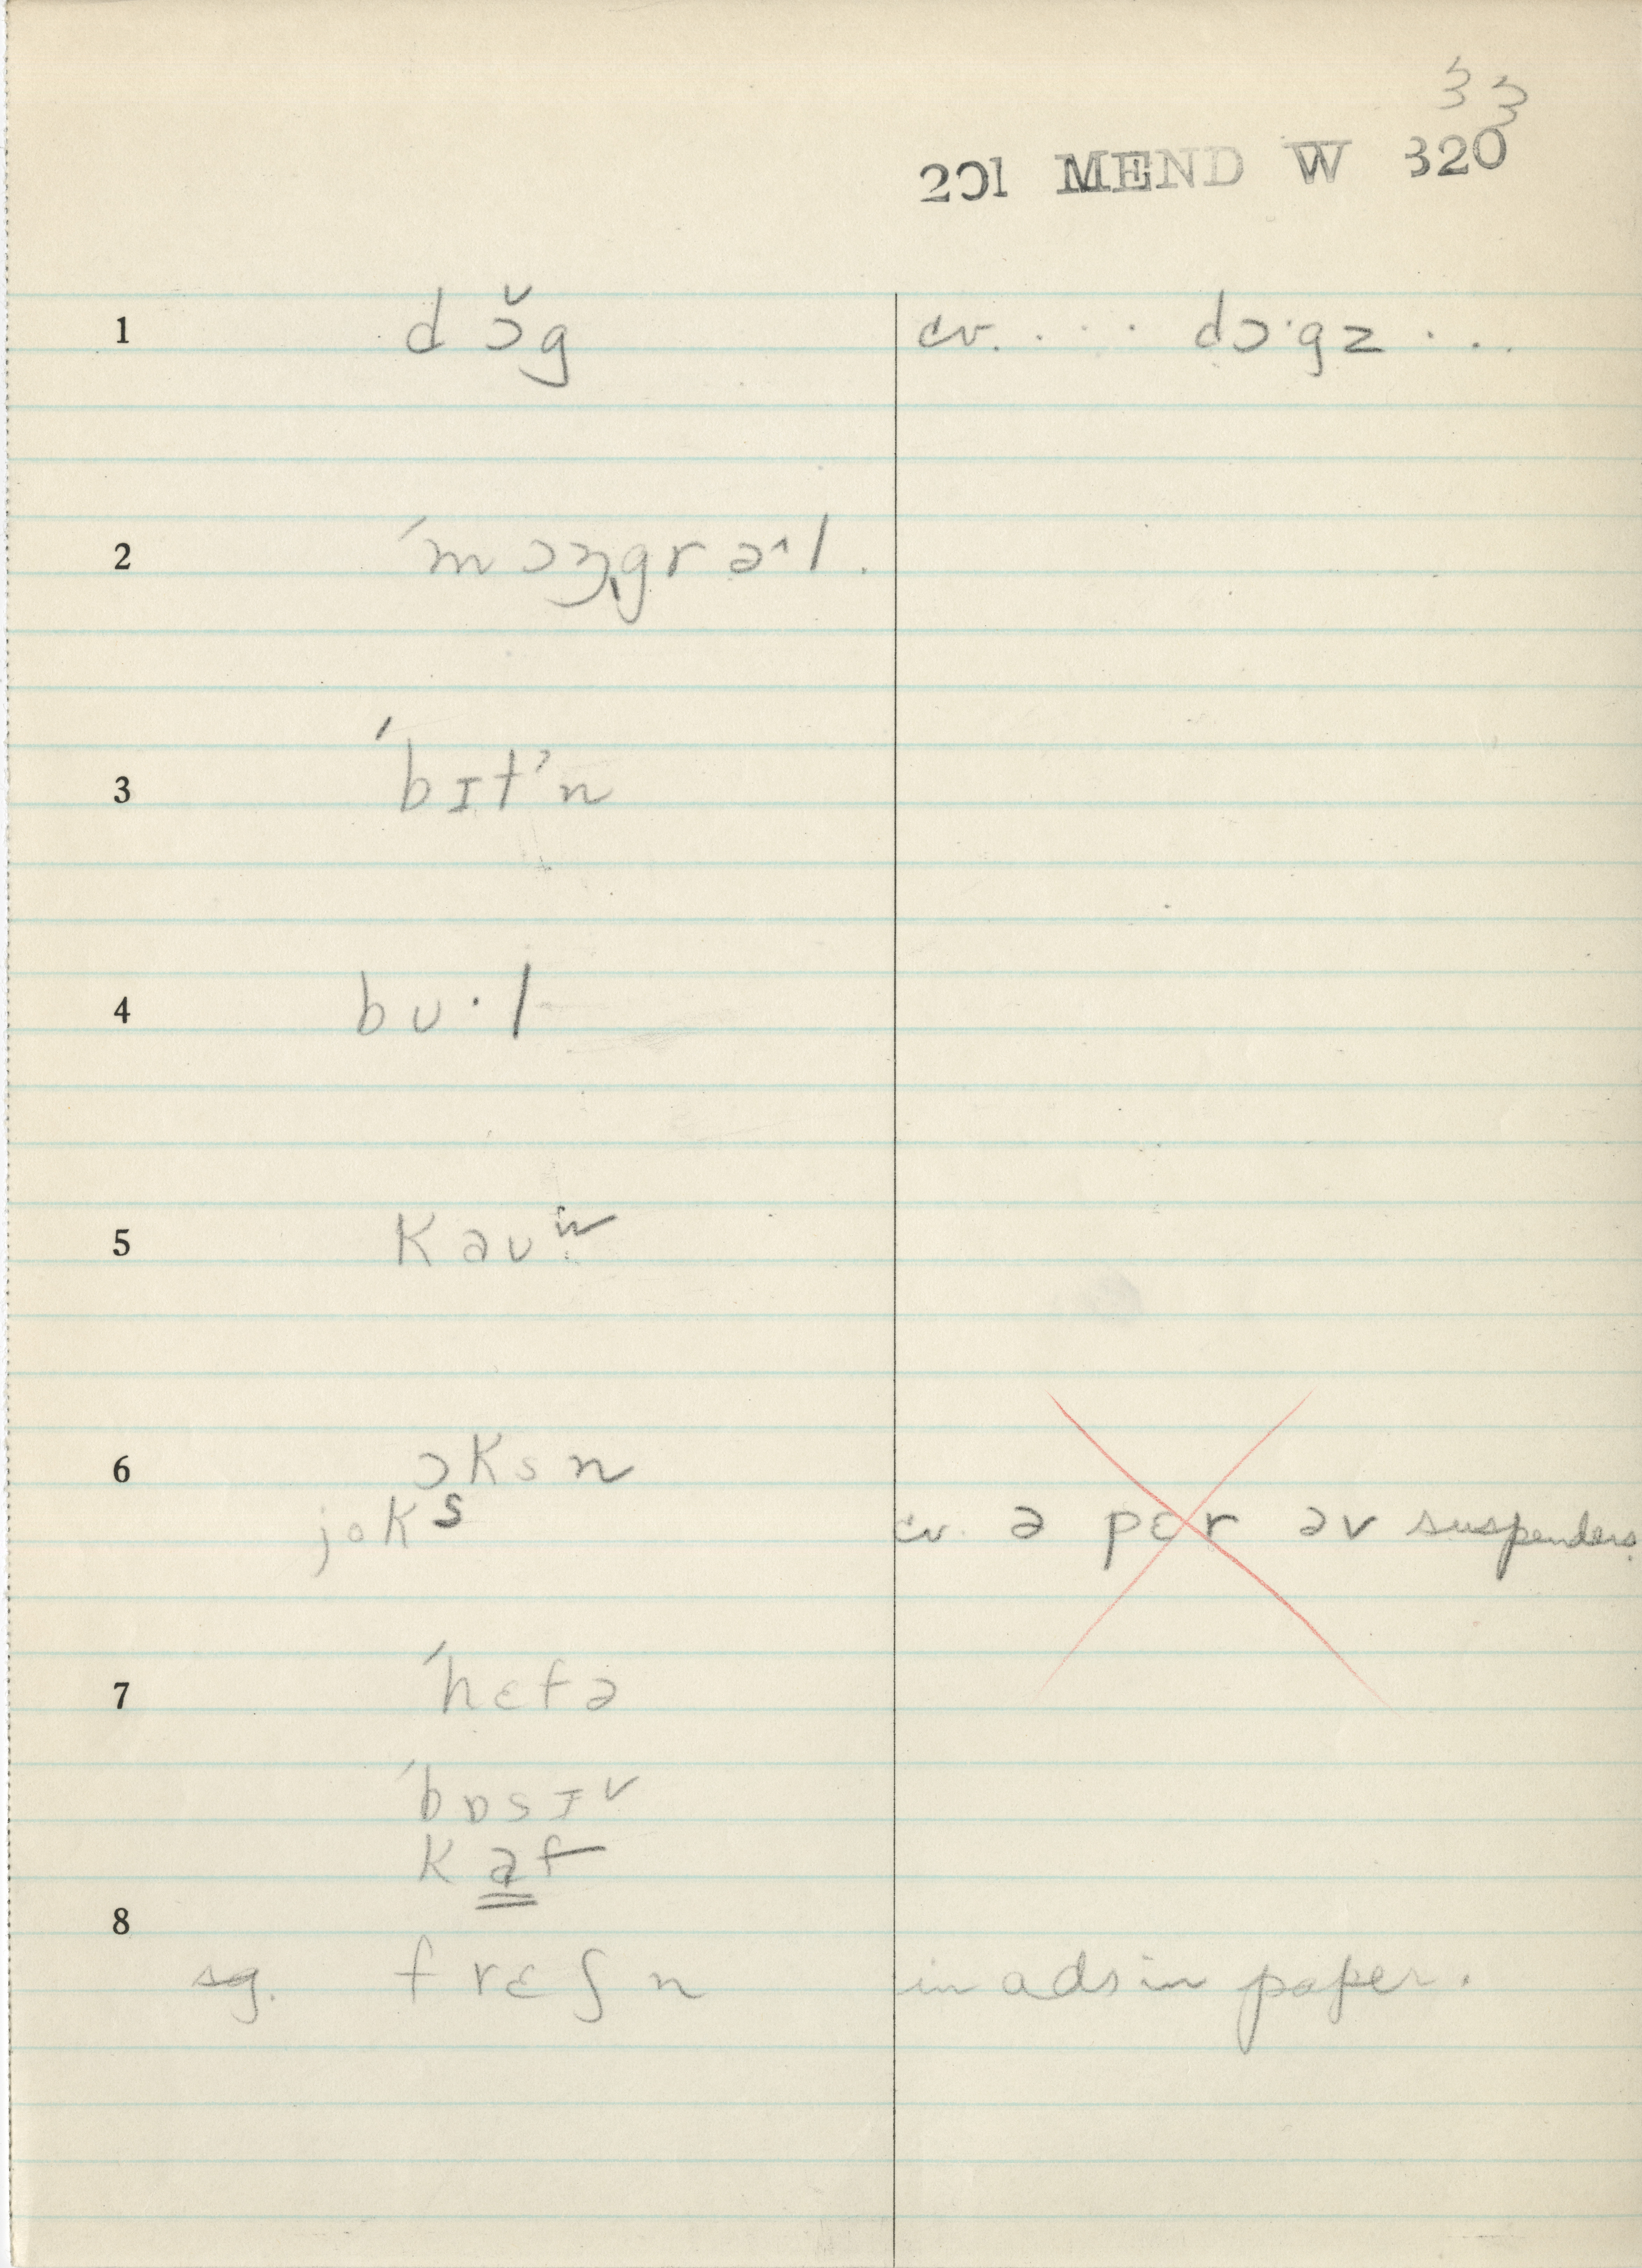 33
201 MEND W 320
1 dɔ̆g cv. . . . dɔ·gz . . .
2 ´mɔŋgrə^l.
3 ´bɪt'n
4 bʊ·l
5 kaʊ
6 ɔksn
joks cv. ə pɛr əv suspenders.
7 ´hɛfə
´bɒsɪ
kaf
8
sg. frɛʃn in ads in paper.